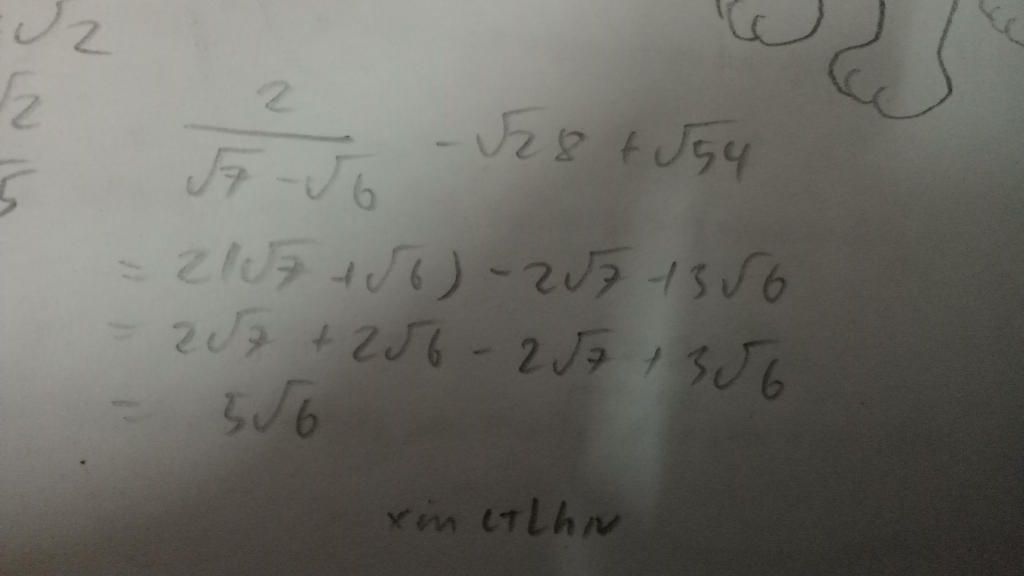 √2
√2
5
2
√7 - √6 - √28 + √54
= 2(√7 + √6) - 2√7 + 3√6
= 2√7 + 2√6 - 2√7 + 3√6
= 5√6
xin CTLhN